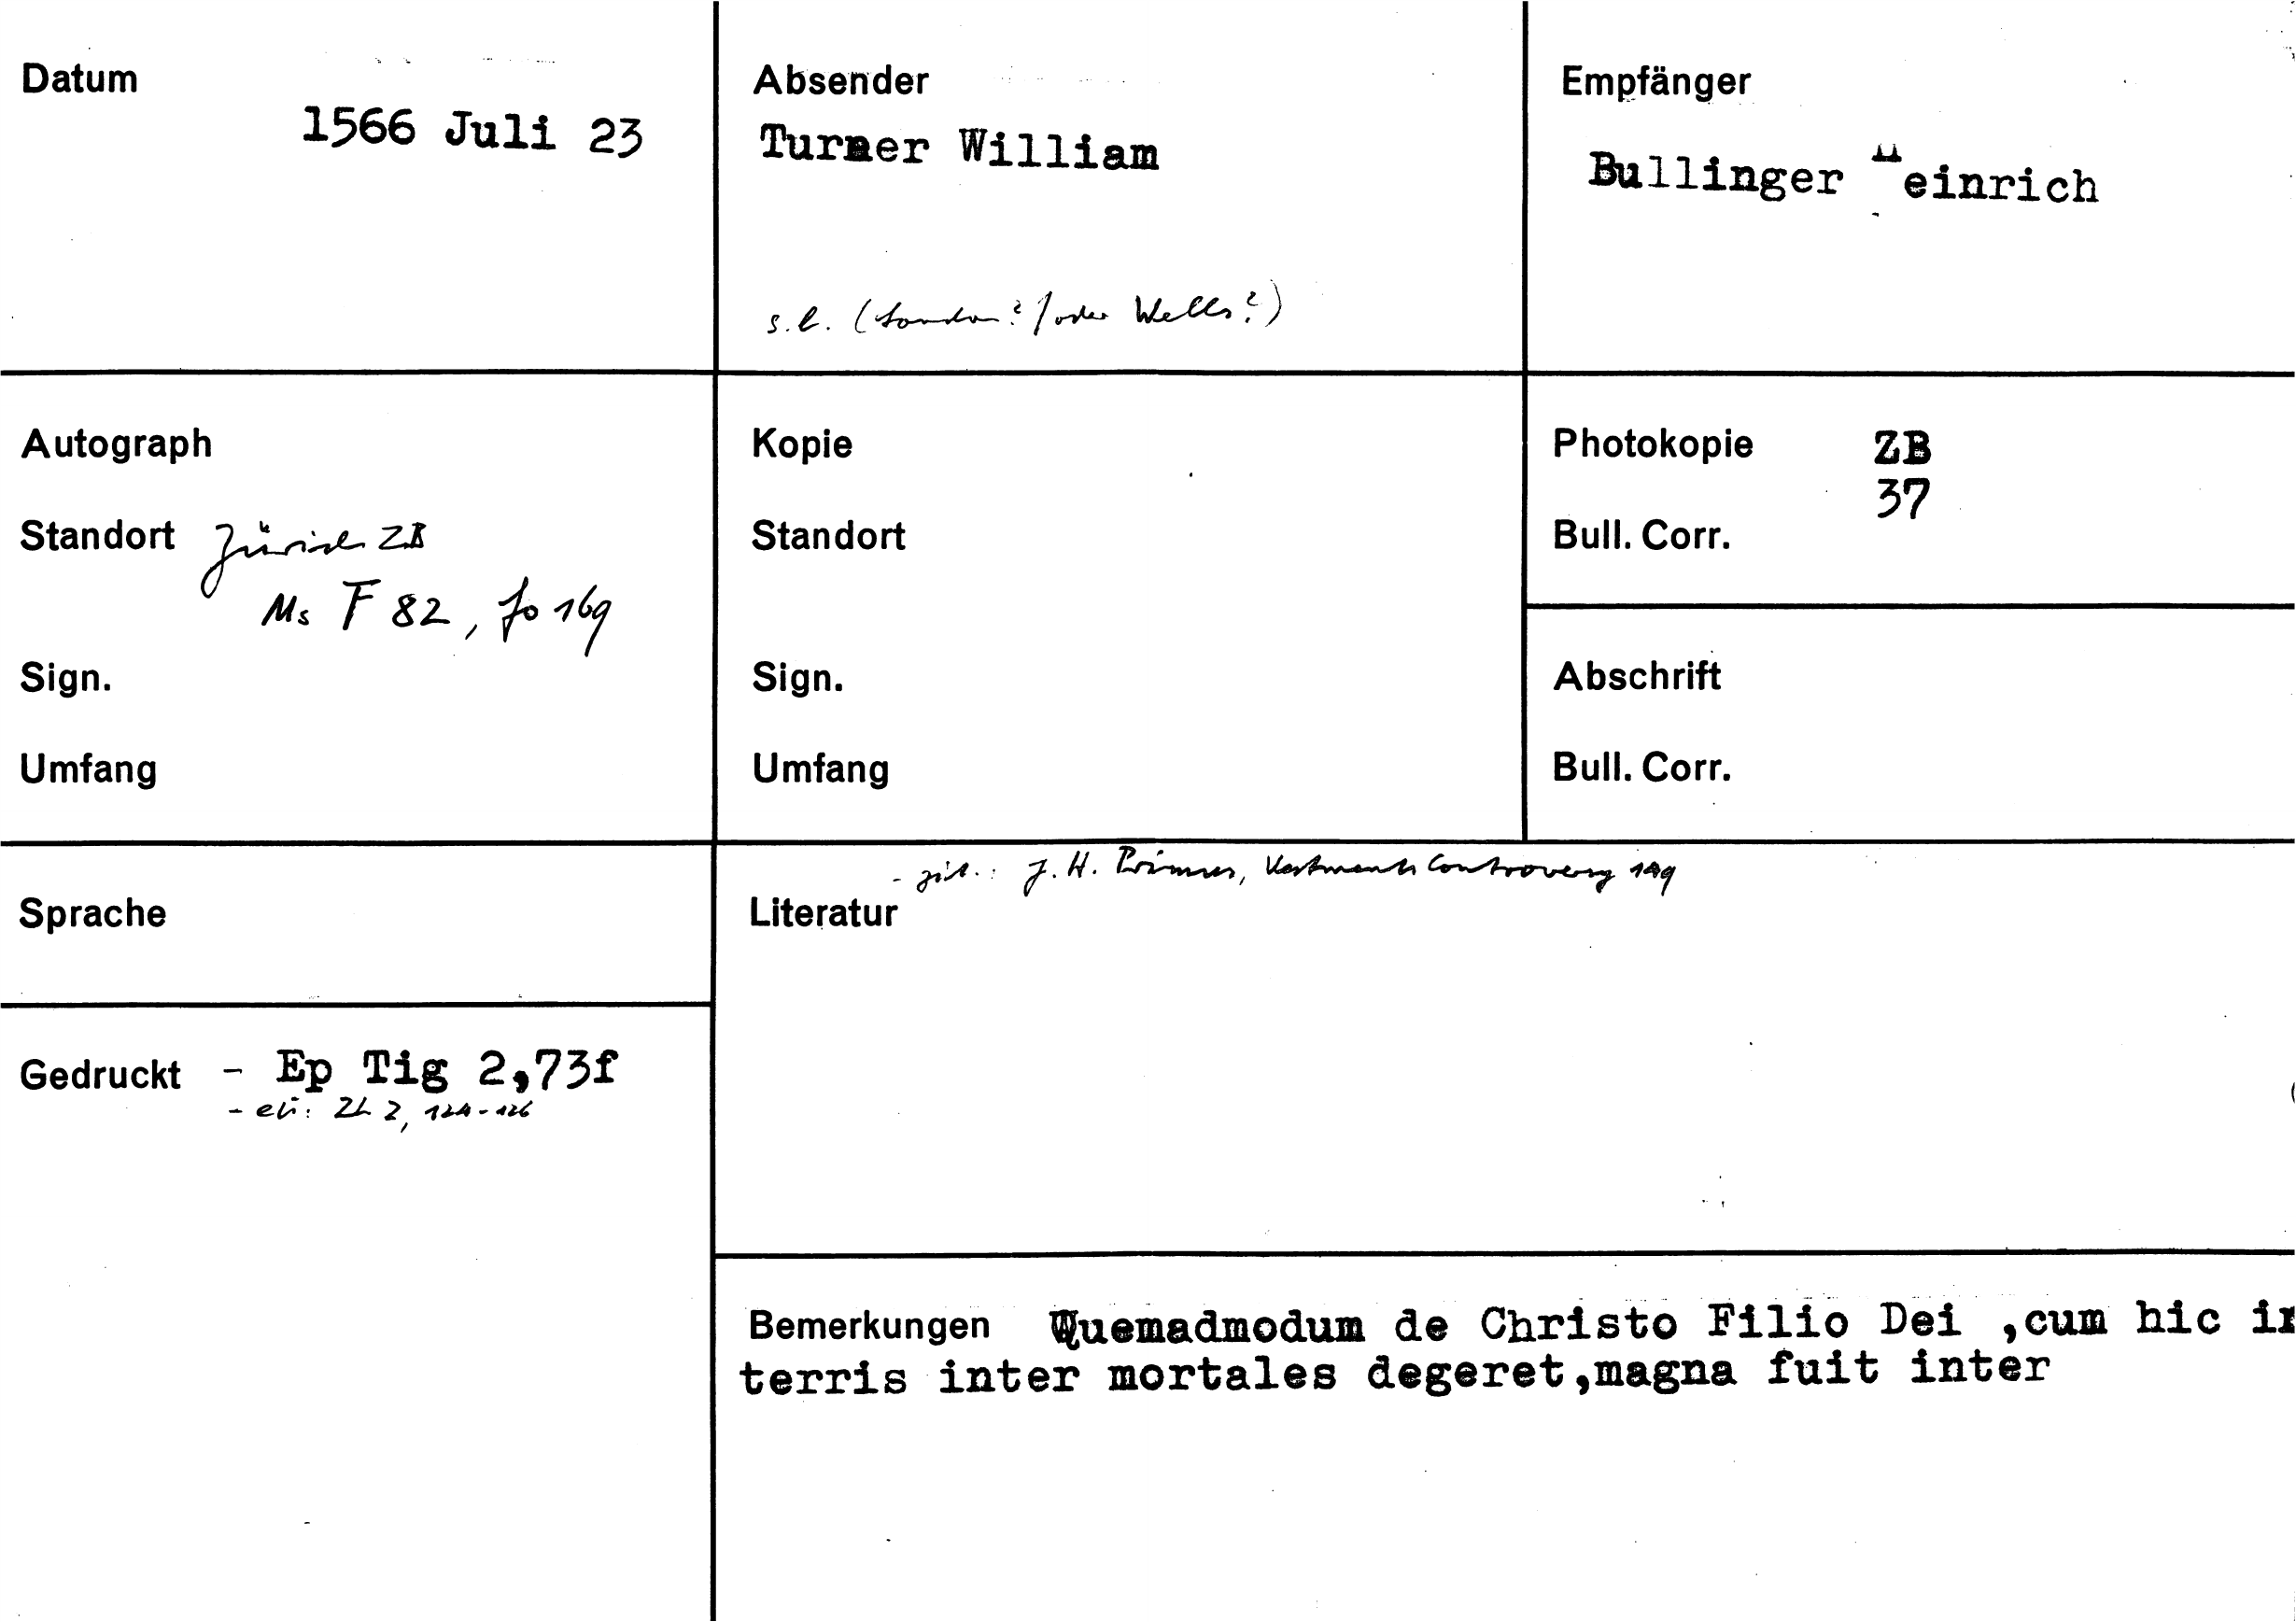 Datum
1566 Juli 23
Absender
Turner William
s.l. (London? / oder Wells?)
Empfänger
Bullinger Heinrich
Autograph
Standort Zürich ZB
Ms F 82, fo 169
Sign.
Umfang
Kopie
Standort
Sign.
Umfang
Photokopie ZB
37
Bull. Corr.
Abschrift
Bull. Corr.
Sprache
Gedruckt - Ep Tig 2,73f
- ZL 2, 124-126
- zit.: J. H. Primus, Vestments Controversy
Literatur
Bemerkungen Quemadmodum de Christo Filio Dei ,cum hic in
terris inter mortales degeret,magna fuit inter